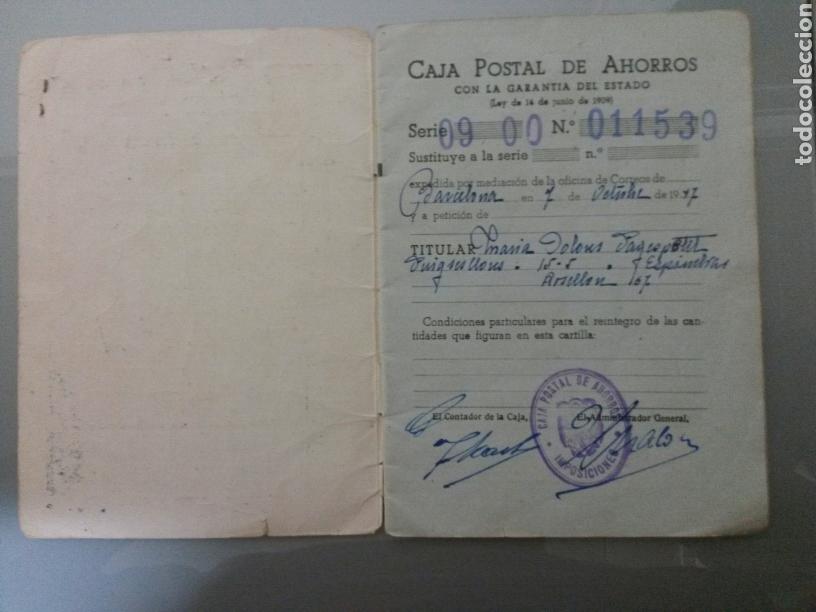 CAJA POSTAL DE AHORROS
CON LA GARANTIA DEL ESTADO
(Ley de 14 de junio de 1909)
Serie 09 00 N.º 011539
Sustituye a la serie n.º
expedida por mediación de la oficina de Correos de
Barcelona en 7 de Octubre de 19
y a petición de
TITULAR Maria Dolors
15-5
67
Condiciones particulares para el reintegro de las can-
tidades que figuran en esta cartilla:
El Contador de la Caja, El Administrador General,
CAJA POSTAL DE AHORROS
IMPOSICIONES
todocoleccion